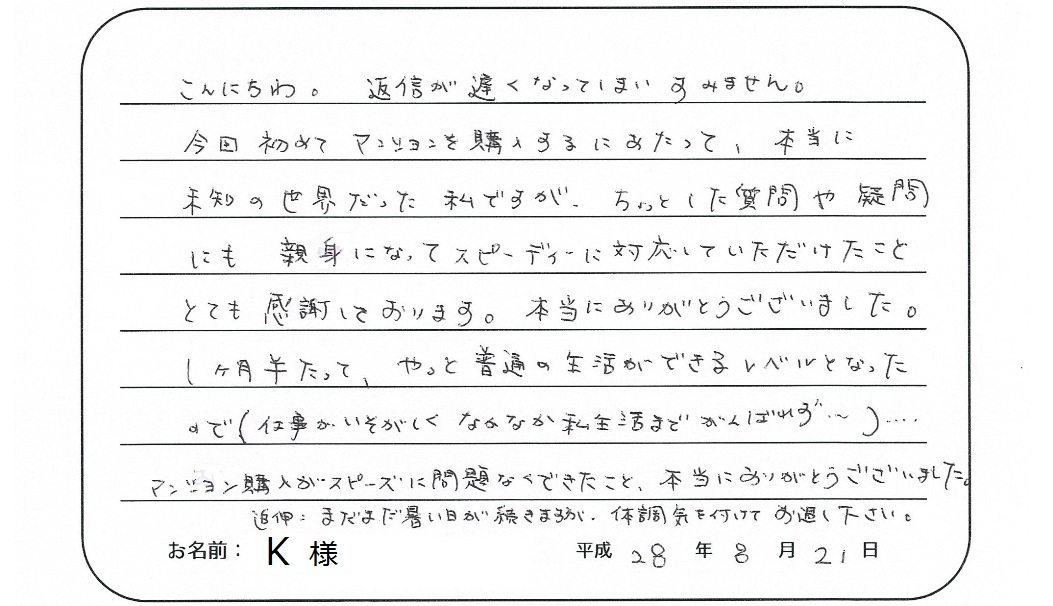 こんにちわ。 返信が遅くなってしまいすみません。
今回初めてマンションを購入するにあたって、本当に
未知の世界だった私ですが、ちょっとした質問や疑問
にも 親身になってスピーディーに対応していただけたこと
とても感謝しております。本当にありがとうございました。
1ヶ月半たって、やっと普通の生活ができるレベルとなった
ので(仕事がいそがしくなかなか私生活までがんばれず〜)....
マンション購入がスピーズに問題なくできたこと、本当にありがとうございました。
追伸:まだまだ暑い日が続きますが、体調気を付けてお過し下さい。
お名前: K 様 平成 28 年 8 月 21 日